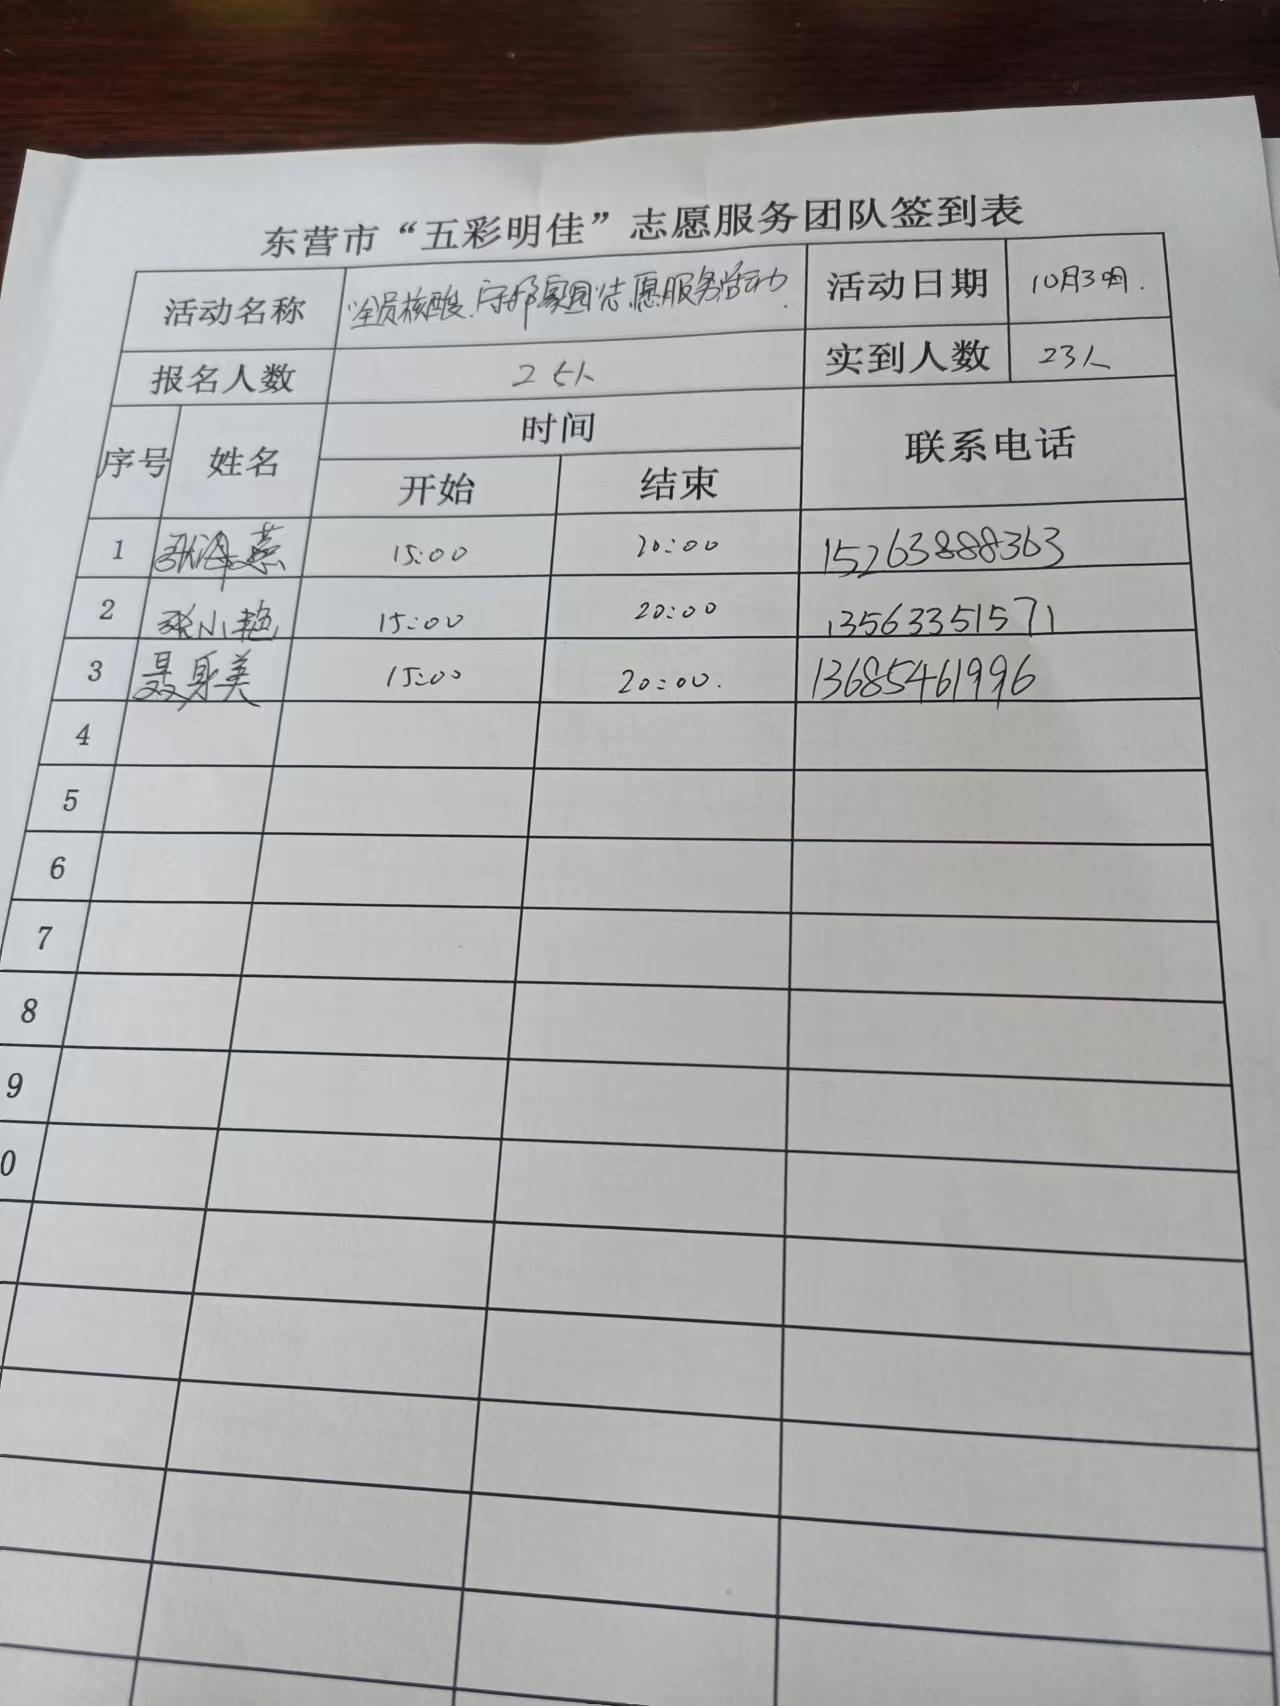 东营市“五彩明佳”志愿服务团队签到表
活动名称 “全员核酸、守护家园”志愿服务活动 活动日期 10月3日.
报名人数 25人 实到人数 23人
序号 姓名 时间 联系电话
开始 结束
1 张海燕 15:00 20:00 15263888363
2 张小艳 15:00 20:00 13563351571
3 聂身美 15:00 20:00. 13685461996
4
5
6
7
8
9
0